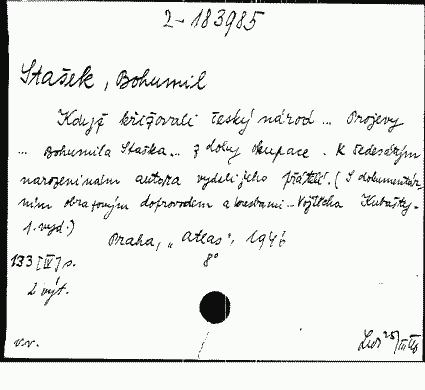 2-183985
Stašek, Bohumil
Když křižovali český národ ... Projevy
... Bohumila Staška... z doby okupace. K šedesátým
narozeninám autora vydali jeho přátelé. (S dokumentár-
ním obrazovým doprovodem a kresbami... Vojtěcha Kubašty.
1. vyd.)
Praha, „Atlas", 1946
133 [IV] s. 8°
2 výt.
v.v.